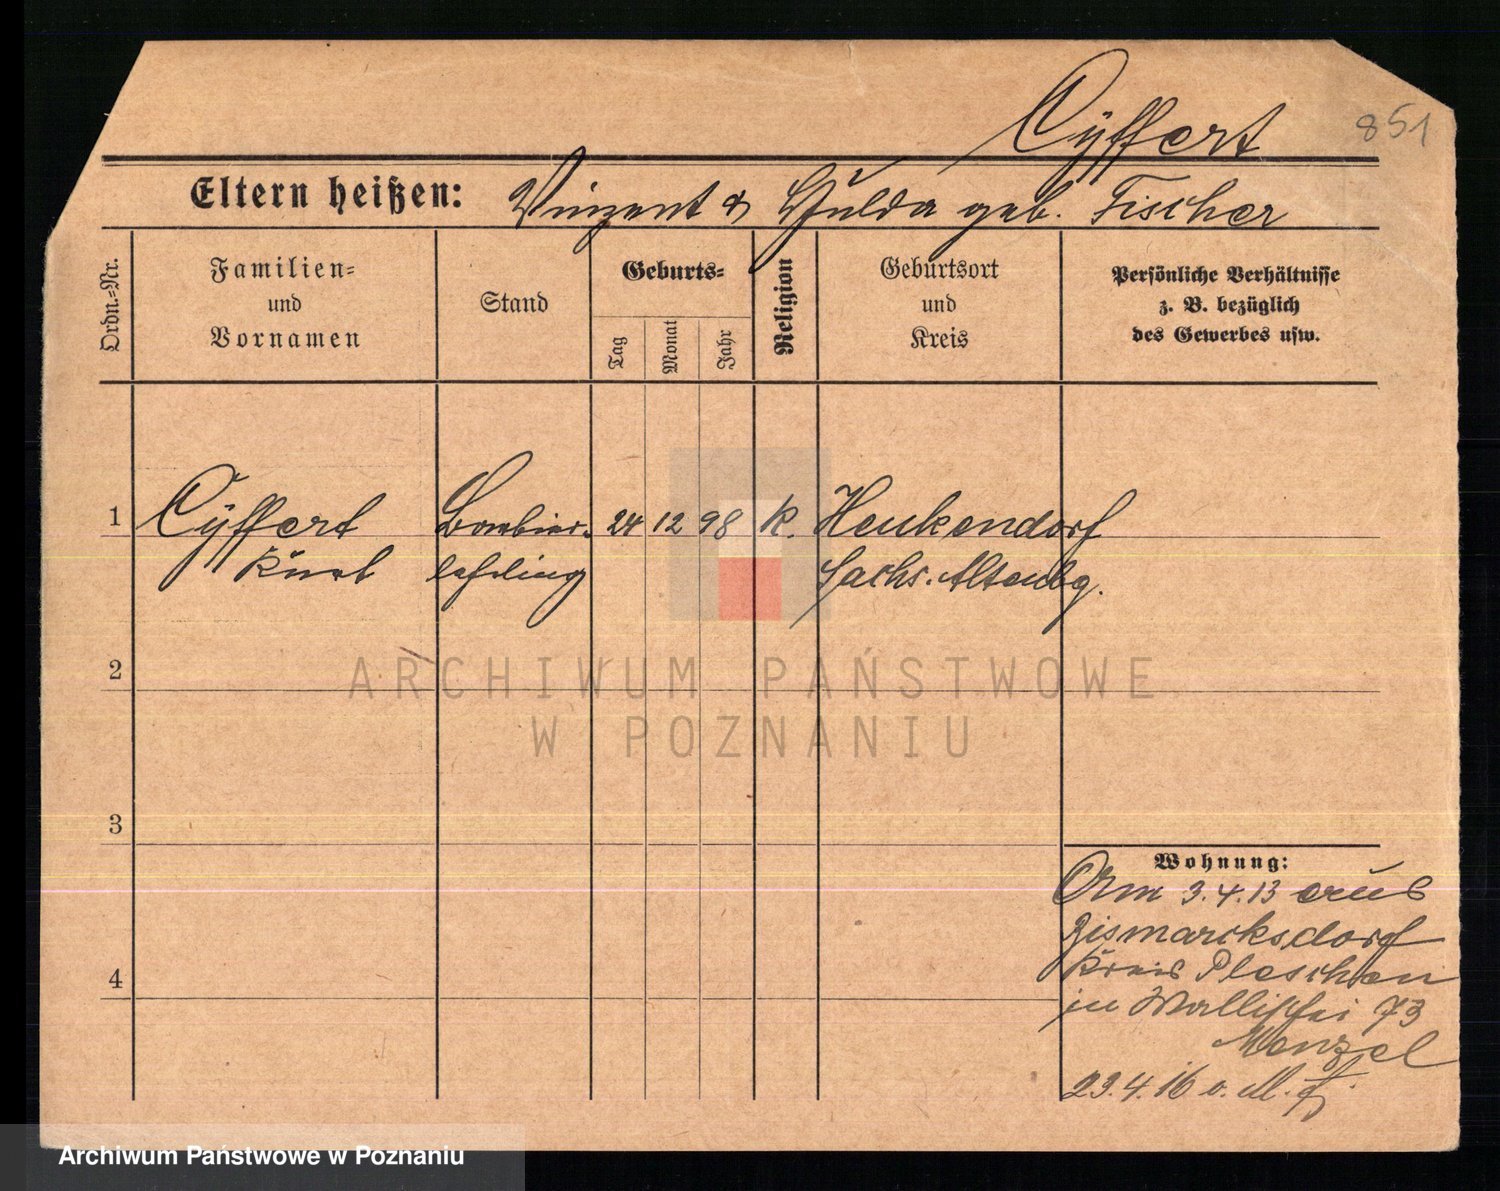 Cÿffert
851
Eltern heißen: Vinzent & Hulda geb. Fischer
Ordn.-Nr.
Familien-
und
Vornamen
Stand
Geburts-
Tag
Monat
Jahr
Religion
Geburtsort
und
Kreis
Persönliche Verhältnisse
z. B. bezüglich
des Gewerbes usw.
1 Cÿffert 24 12 98 k. Heukendorf
Kurt Sachs. Altenbg.
ARCHIWUM PAŃSTWOWE
W POZNANIU
2
3
4
Wohnung:
Am 3.4.13 aus
Bismarcksdorf
Kreis Pleschen
in Wallischei 73
Menzel
23.4.16
Archiwum Państwowe w Poznaniu